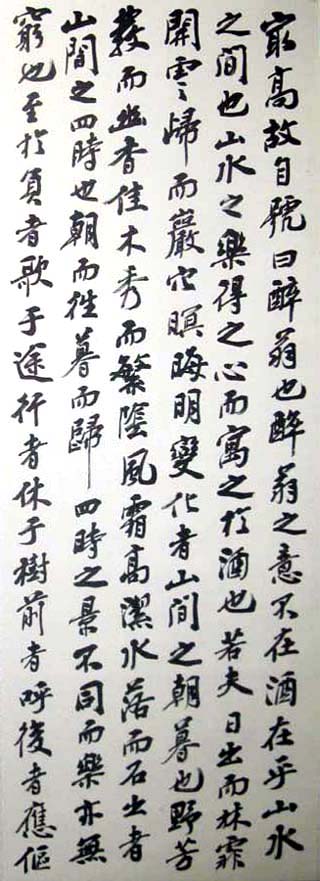 最高故自號曰醉翁也醉翁之意不在酒在乎山水
之間也山水之樂得之心而寓之於酒也若夫日出而林霏
開雲歸而巖穴暝晦明變化者山間之朝暮也野芳
發而幽香佳木秀而繁陰風霜高潔水落而石出者
山間之四時也朝而往暮而歸四時之景不同而樂亦無
窮也至於負者歌于途行者休于樹前者呼後者應傴